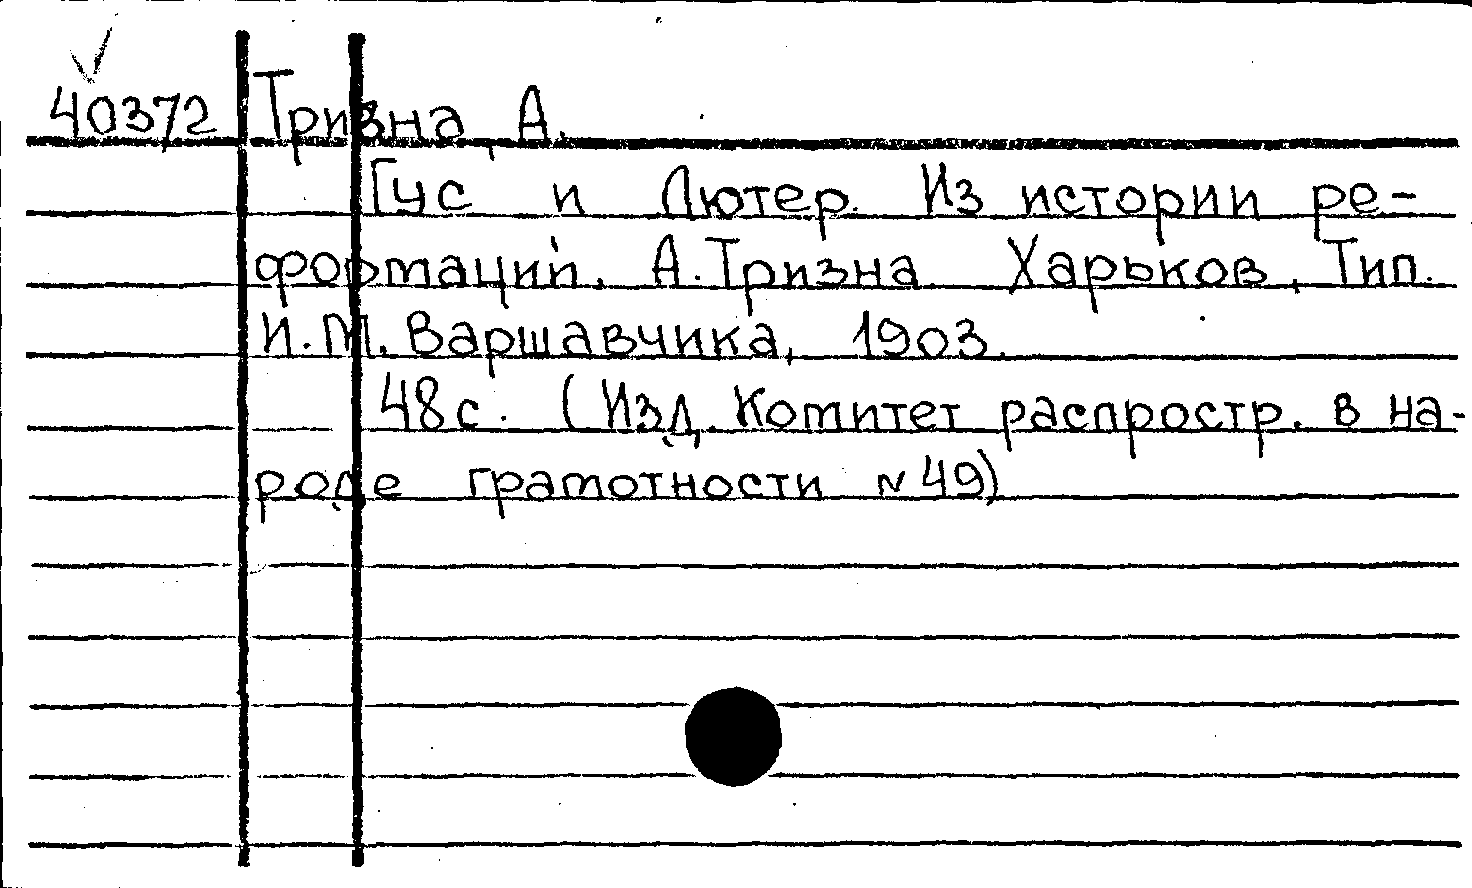 40372 Тризна, А.
Гус и Лютер. Из истории ре-
формаций. А. Тризна. Харьков, Тип.
И. М. Варшавчика, 1903.
48 с. (Изд. Комитет распростр. в на-
роде грамотности N 49)